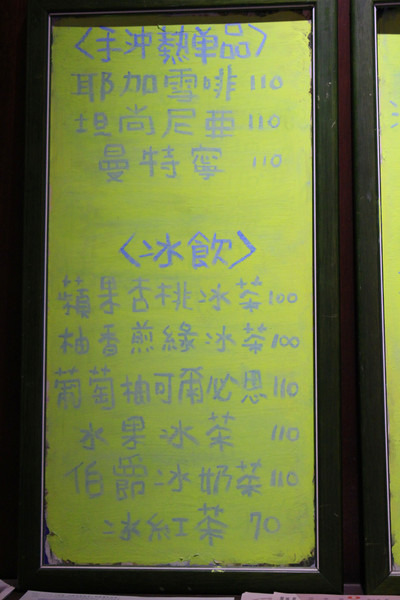 〈手沖熱單品〉
耶加雪啡 110
坦尚尼亞 110
曼特寧 110
〈冰飲〉
蘋果杏桃冰茶 100
柚香煎綠冰茶 100
葡萄柚可爾必思 110
水果冰茶 110
伯爵冰奶茶 110
冰紅茶 70